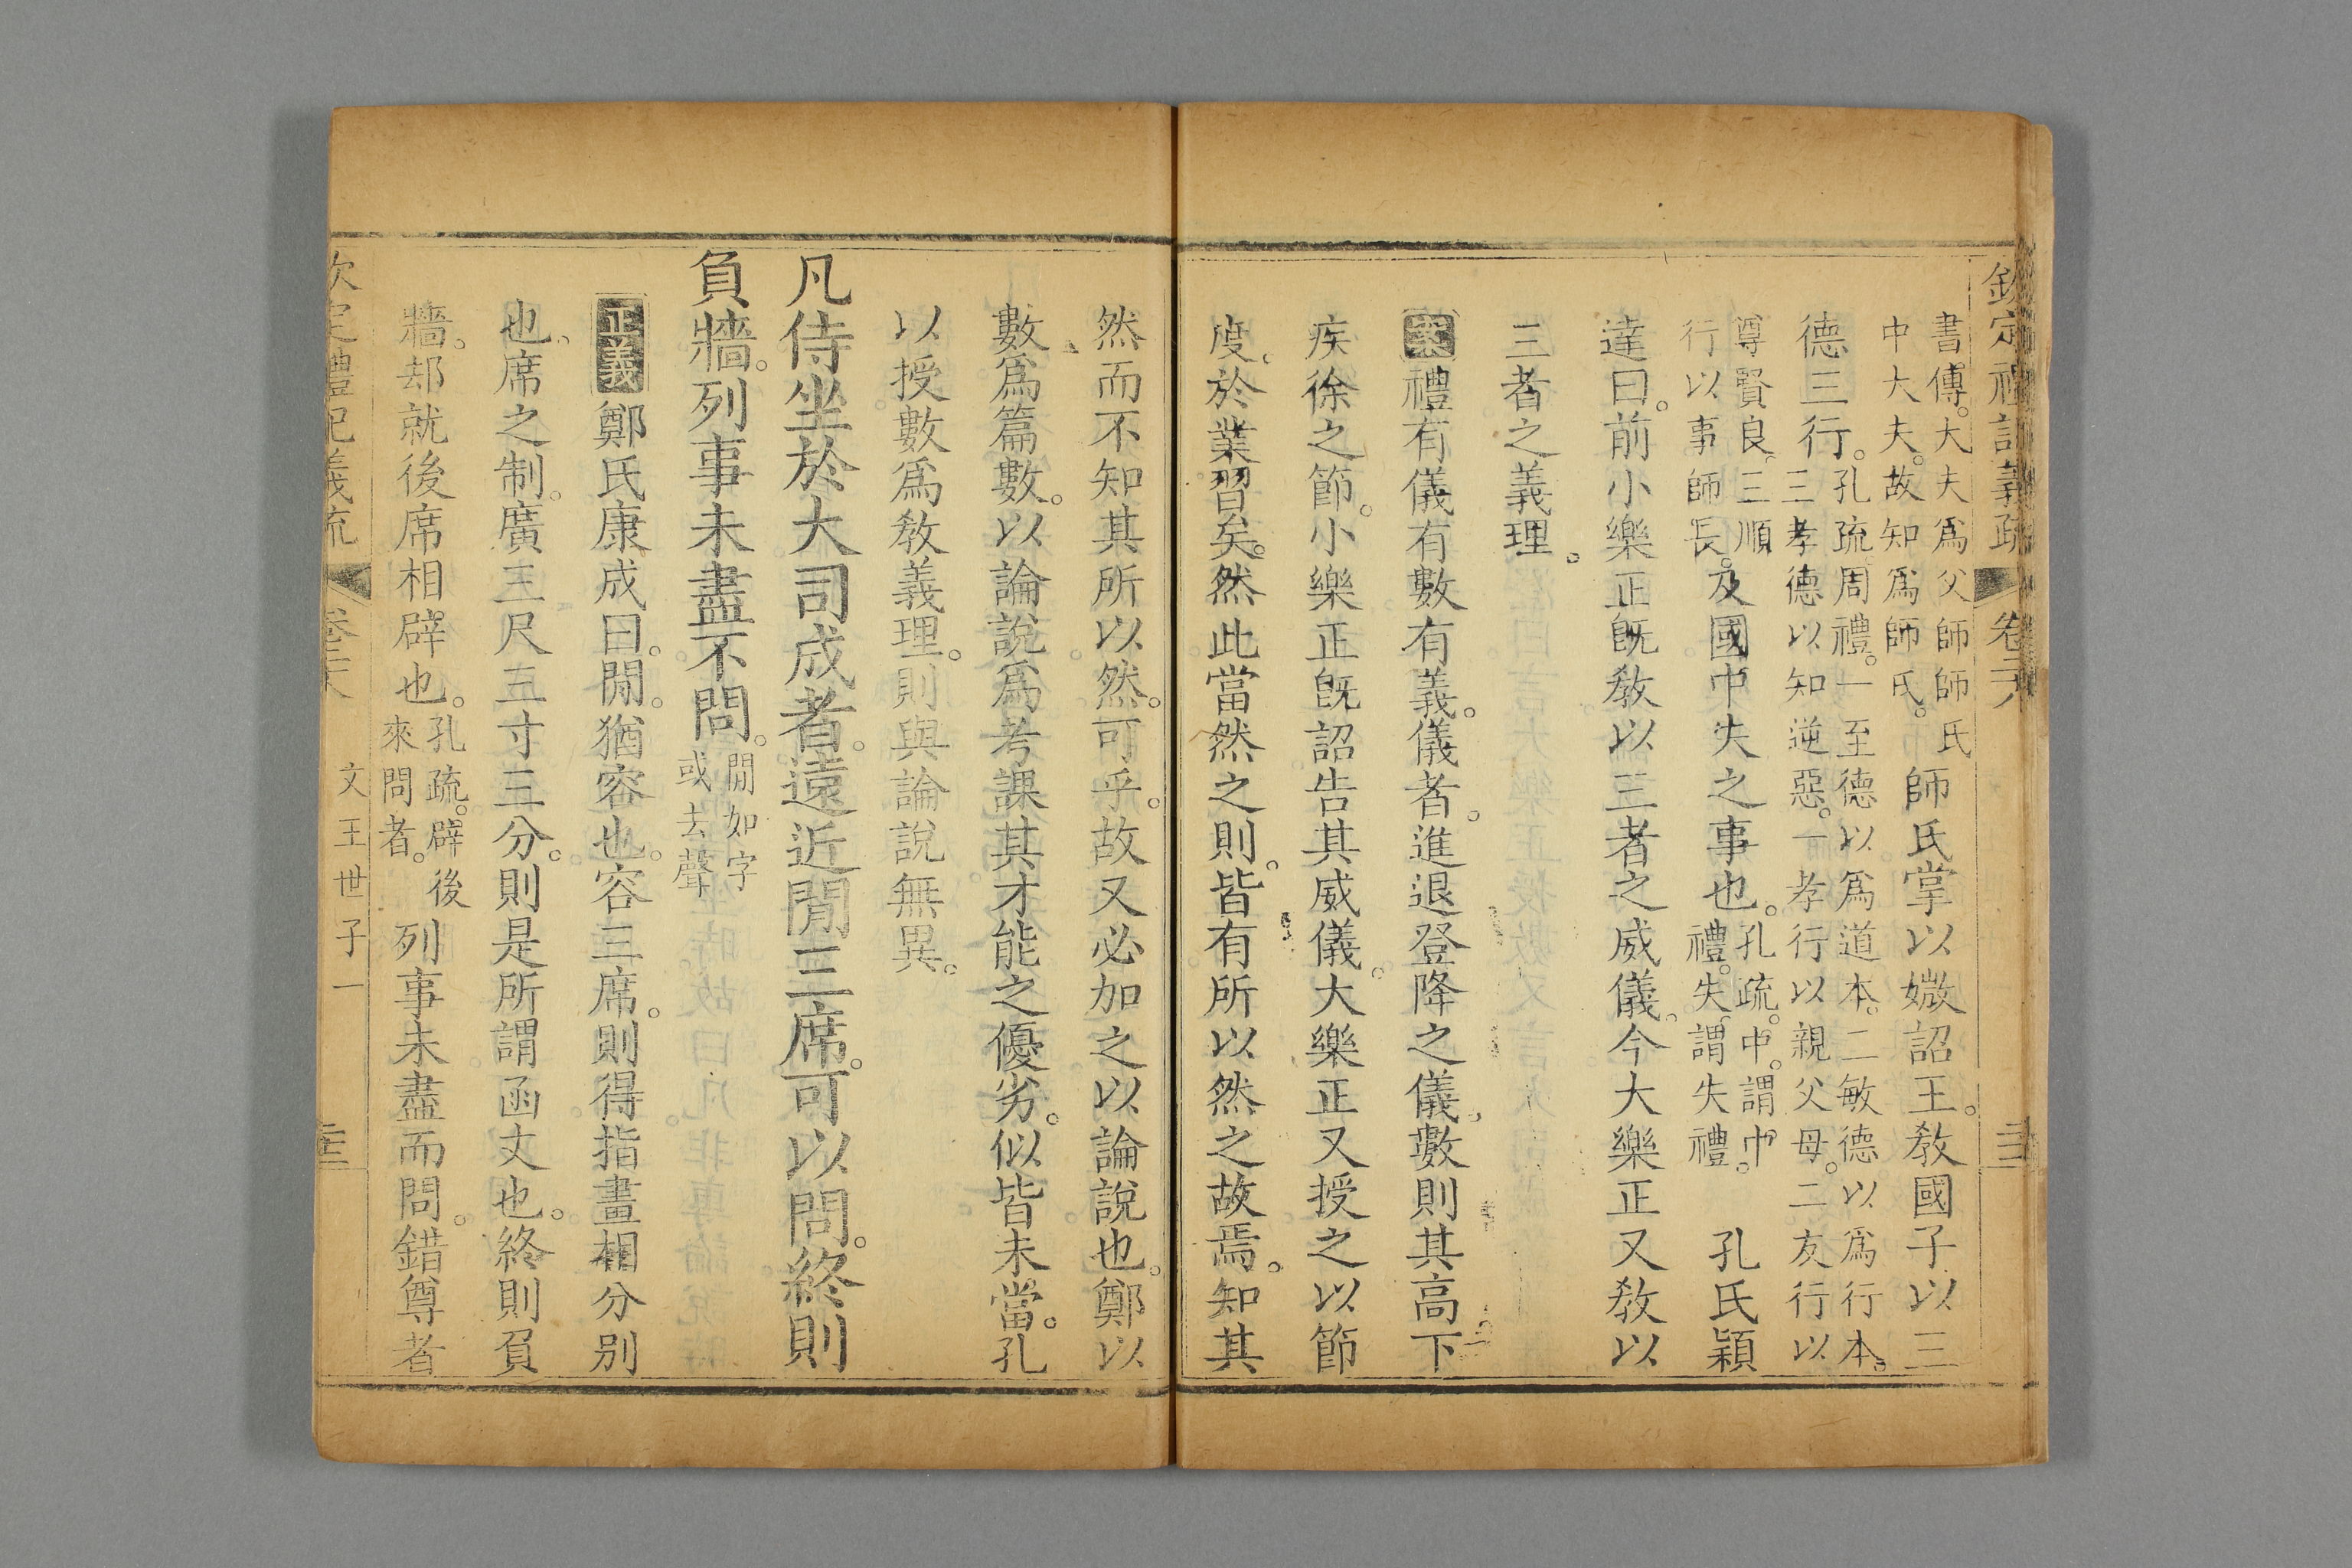 欽定禮記義疏 卷二十八
書傳。大夫爲父師師氏
中大夫。故知爲師氏。師氏掌以媺詔王。敎國子以三
德三行。孔疏。周禮。一至德以爲道本。二敏德以爲行本。
三孝德以知逆惡。一孝行以親父母。二友行以
尊賢良。三順
行以事師長。及國中失之事也。孔疏。中。謂中
禮。失。謂失禮。 孔氏穎
達曰。前小樂正旣敎以三者之威儀。今大樂正又敎以
三者之義理。
案禮有儀有數有義。儀者。進退登降之儀。數則其高下
疾徐之節。小樂正旣詔告其威儀。大樂正又授之以節
度。於業習矣。然此當然之則。皆有所以然之故焉。知其
然而不知其所以然。可乎。故又必加之以論說也。鄭以
數爲篇數。以論說爲考課其才能之優劣。似皆未當。孔
以授數爲敎義理。則與論說無異。
凡侍坐於大司成者。遠近閒三席。可以問。終則
負牆。列事未盡不問。閒如字
或去聲
正義 鄭氏康成曰。閒。猶容也。容三席。則得指畫相分別
也。席之制。廣三尺三寸三分。則是所謂函丈也。終則負
牆。却就後席相辟也。孔疏。辟後
來問者。列事未盡而問。錯尊者
欽定禮記義疏 卷二十八 文王世子一